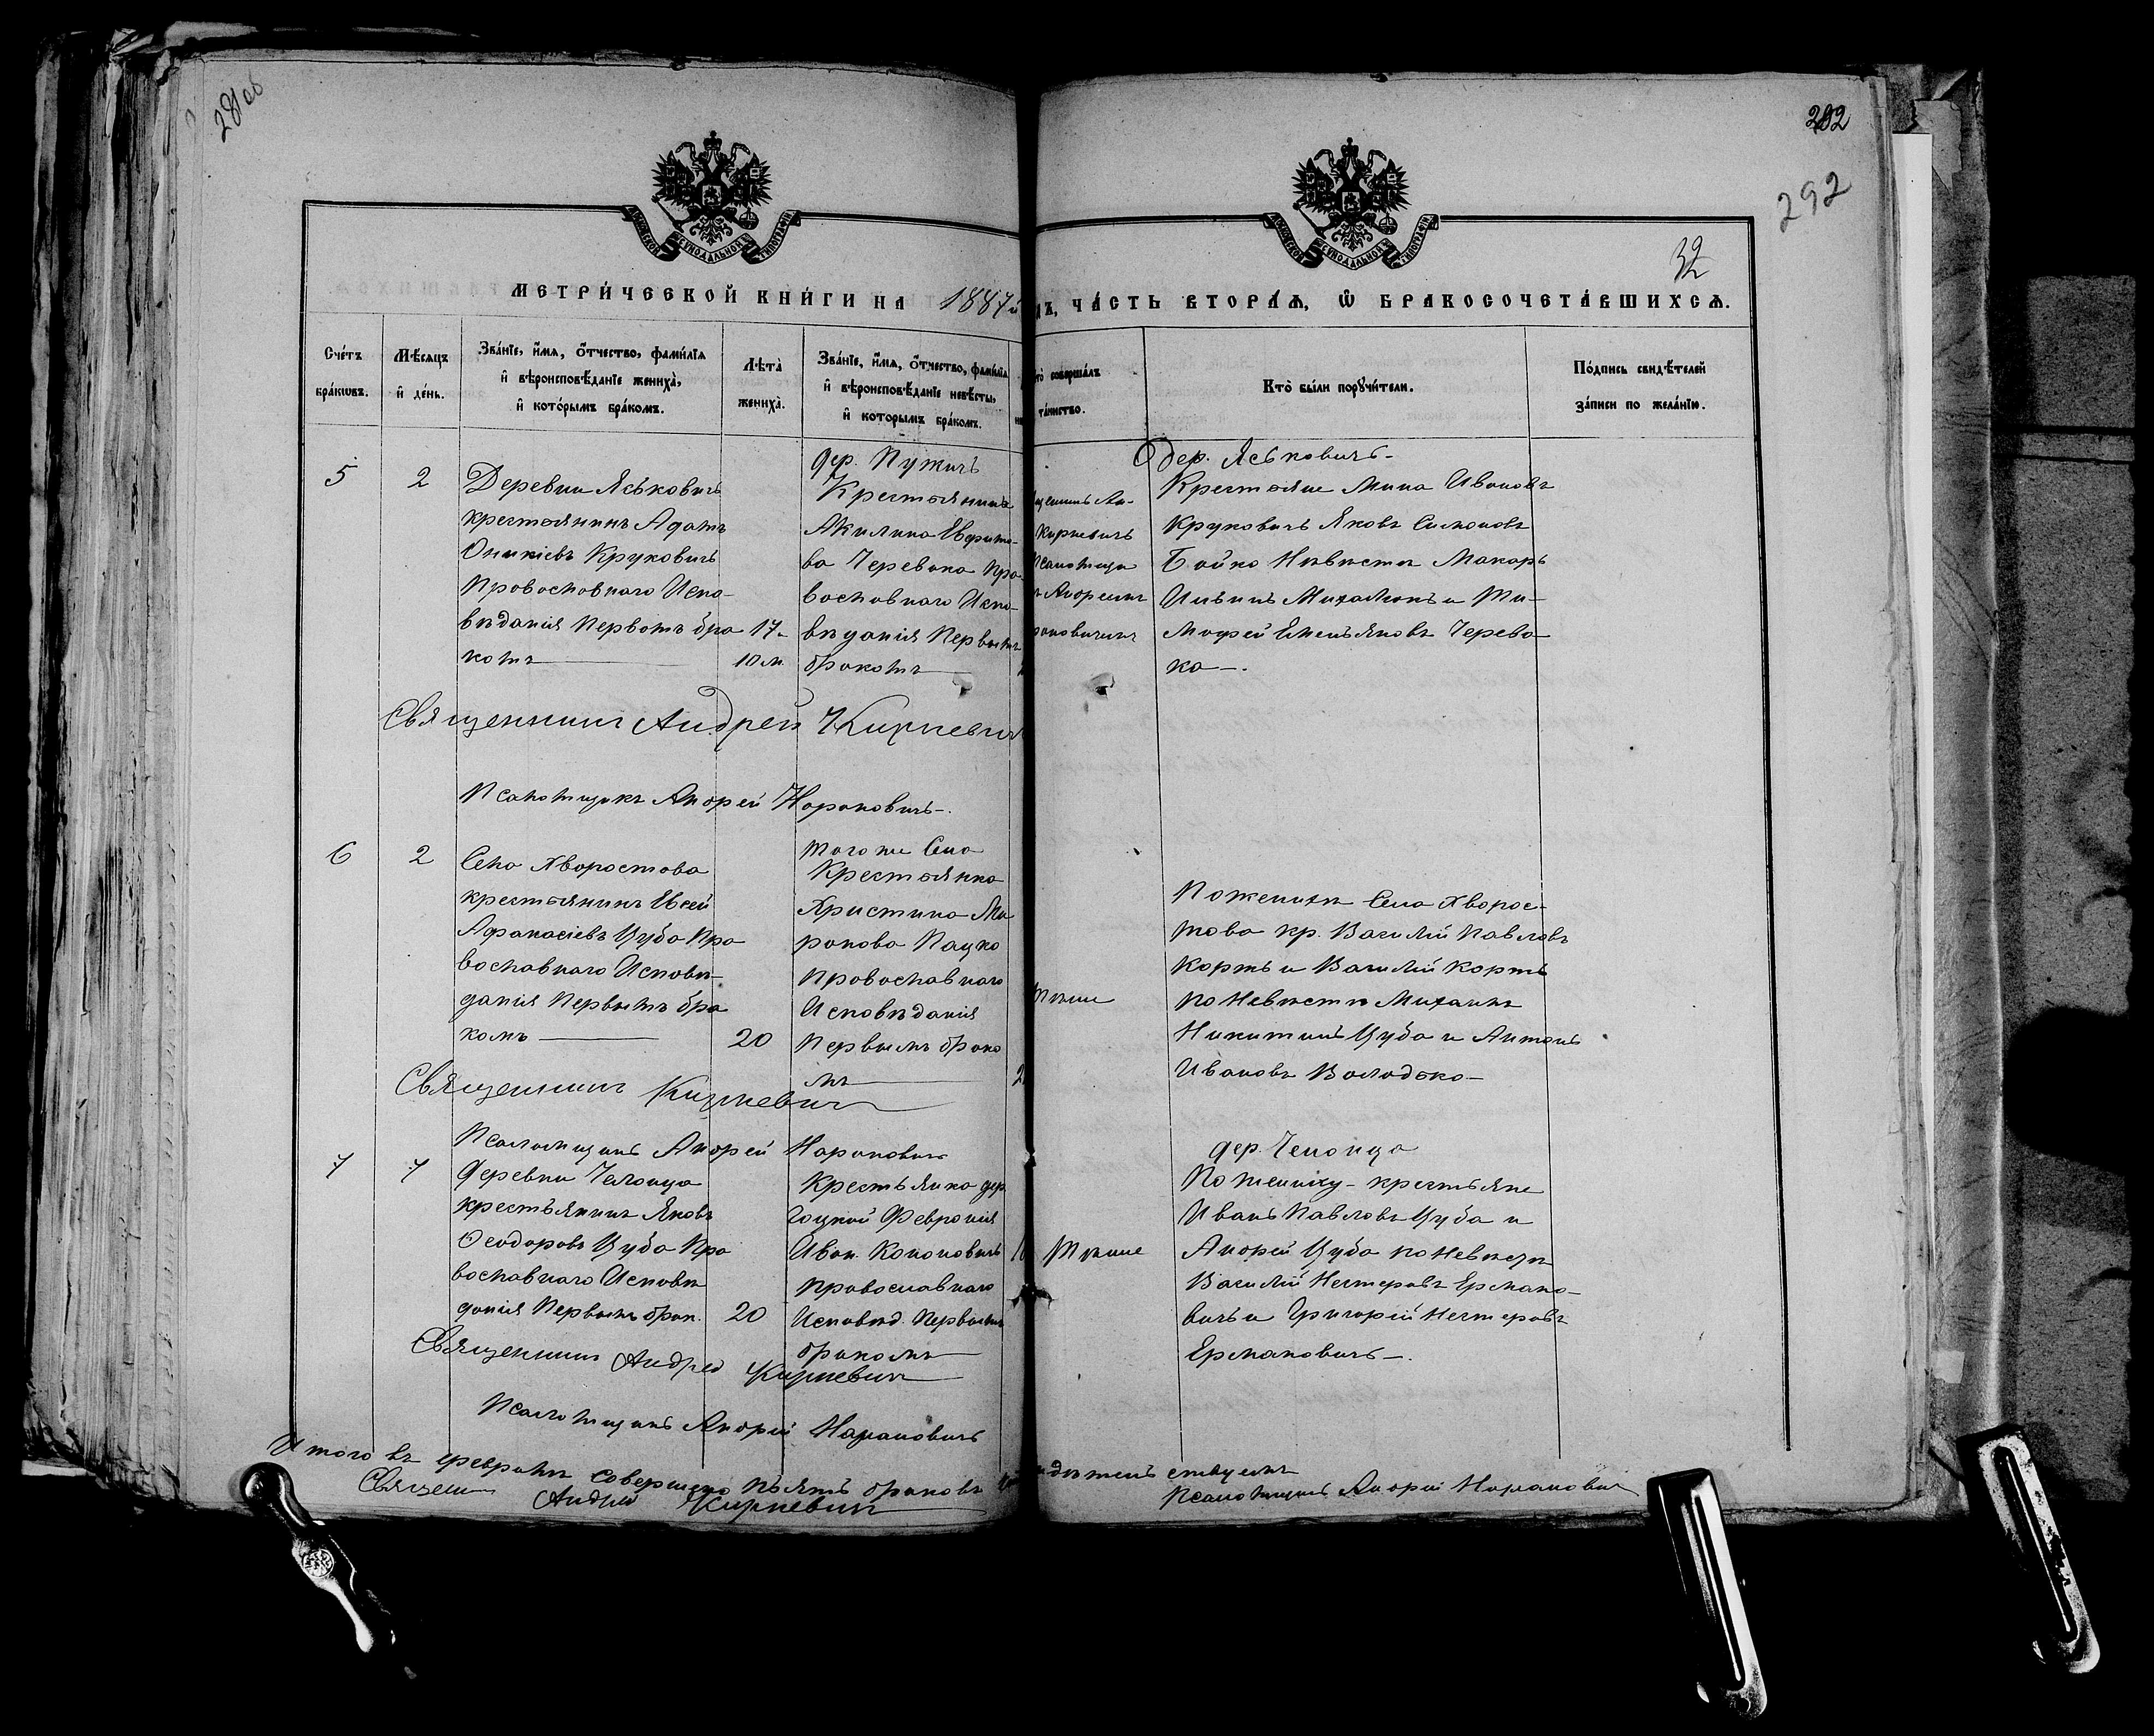 281об
292
292
32
МЕТРИ́ЧЕСКОЙ КНИ́ГИ НА 1887й
ЧА́СТЬ ВТОРА́Ѧ, Ѡ БРАКОСОЧЕТА́ВШИХСѦ.
Сче́тъ бра́кѡвъ.
Мѣ́сяцъ и҆ де́нь.
Зва́нїе, и҆́мя, ѻ҆́тчество, фамилїя и҆ вѣроисповѣ́данїе жениха̀, и҆ кото́рымъ бра́комъ.
Лѣта̀ жениха̀.
Зва́нїе, и҆́мя, ѻ҆́тчество, фамилїя и҆ вѣроисповѣ́данїе невѣ́сты, и҆ которымъ бра́комъ.
совершалъ та́инство.
Кто̀ бы́ли порꙋчи́тели.
По́дпись свидѣ́телей за́писи по жела́нїю.
5
2
Деревни Яськовичъ
крестьянинъ Адамъ
Оникіевъ Круковичъ
Православнаго Испо-
вѣданія Первымъ бра-
комъ
17
10 м.
дер. Пужичъ
Крестьянина
Акилина
ва Черевака Пра-
вославнаго Испо-
вѣданія Первымъ
бракомъ
Кирневичъ
Андреемъ
дер. Яськовичъ-
Крестьяне Мина Ивановъ
Круковичъ Яковъ Симоновъ
Бойко Невѣсты Макаръ
Ильинъ Михалюкъ и Ти-
мофей Емельяновъ Черева-
ка-.
Священникъ Андрей Кирневичъ
Псаломщикъ Андрей Нарановичъ-.
6
2
Села Хворостова
крестьянинъ Евсей
Афанасіевъ Цуба Пра
вославнаго Исповѣ-
данія Первымъ бра
комъ
20
того же Села
Крестьянка
Христина Ми
ронова Пацко
православнаго
Исповѣданія
Первымъ брако
мъ
Тѣже
По женихѣ Села Хворос-
това кр. Василій Павловъ
Коржъ и Василій Коржъ
по Невѣстѣ Михаилъ
Никитинъ Цуба и Антонъ
Ивановъ Володько-
Священникъ Кирневичъ
Псаломщикъ Андрей Нарановичъ
7
7
Деревни Челонца
крестьянинъ Яковъ
Ѳеодоровъ Цуба Пра
вославнаго Исповѣ
данія Первымъ брак.
20
Крестьянка дер.
Гоцкой Февронія
Иван. Кононовичъ
православнаго
Исповѣд. Первымъ
бракомъ
Тѣже
дер. Челонца
По жениху - крестьяне
Иванъ Павловъ Цуба и
Андрей Цуба по Невѣстѣ
Василій Нестеровъ Ермако-
вичъ и Григорій Нестеровъ
Ермаковичъ-.
Священникъ Андрей Кирневичъ
Псаломщикъ Андрей Нарановичъ
Итого въ февралѣ совершено пять браковъ
Священ Андрей Кирневичъ
Псаломщикъ Андрей Нарановичъ